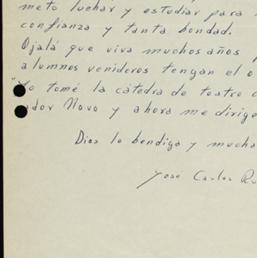 meto luchar y estudiar para
confianza y tanta bondad.
Ojalá que viva muchos años
alumnos venideros tengan el
"Yo tomé la cátedra de teatro
dor Novo y ahora me dirige
Dios lo bendiga y mucha
José Carlos